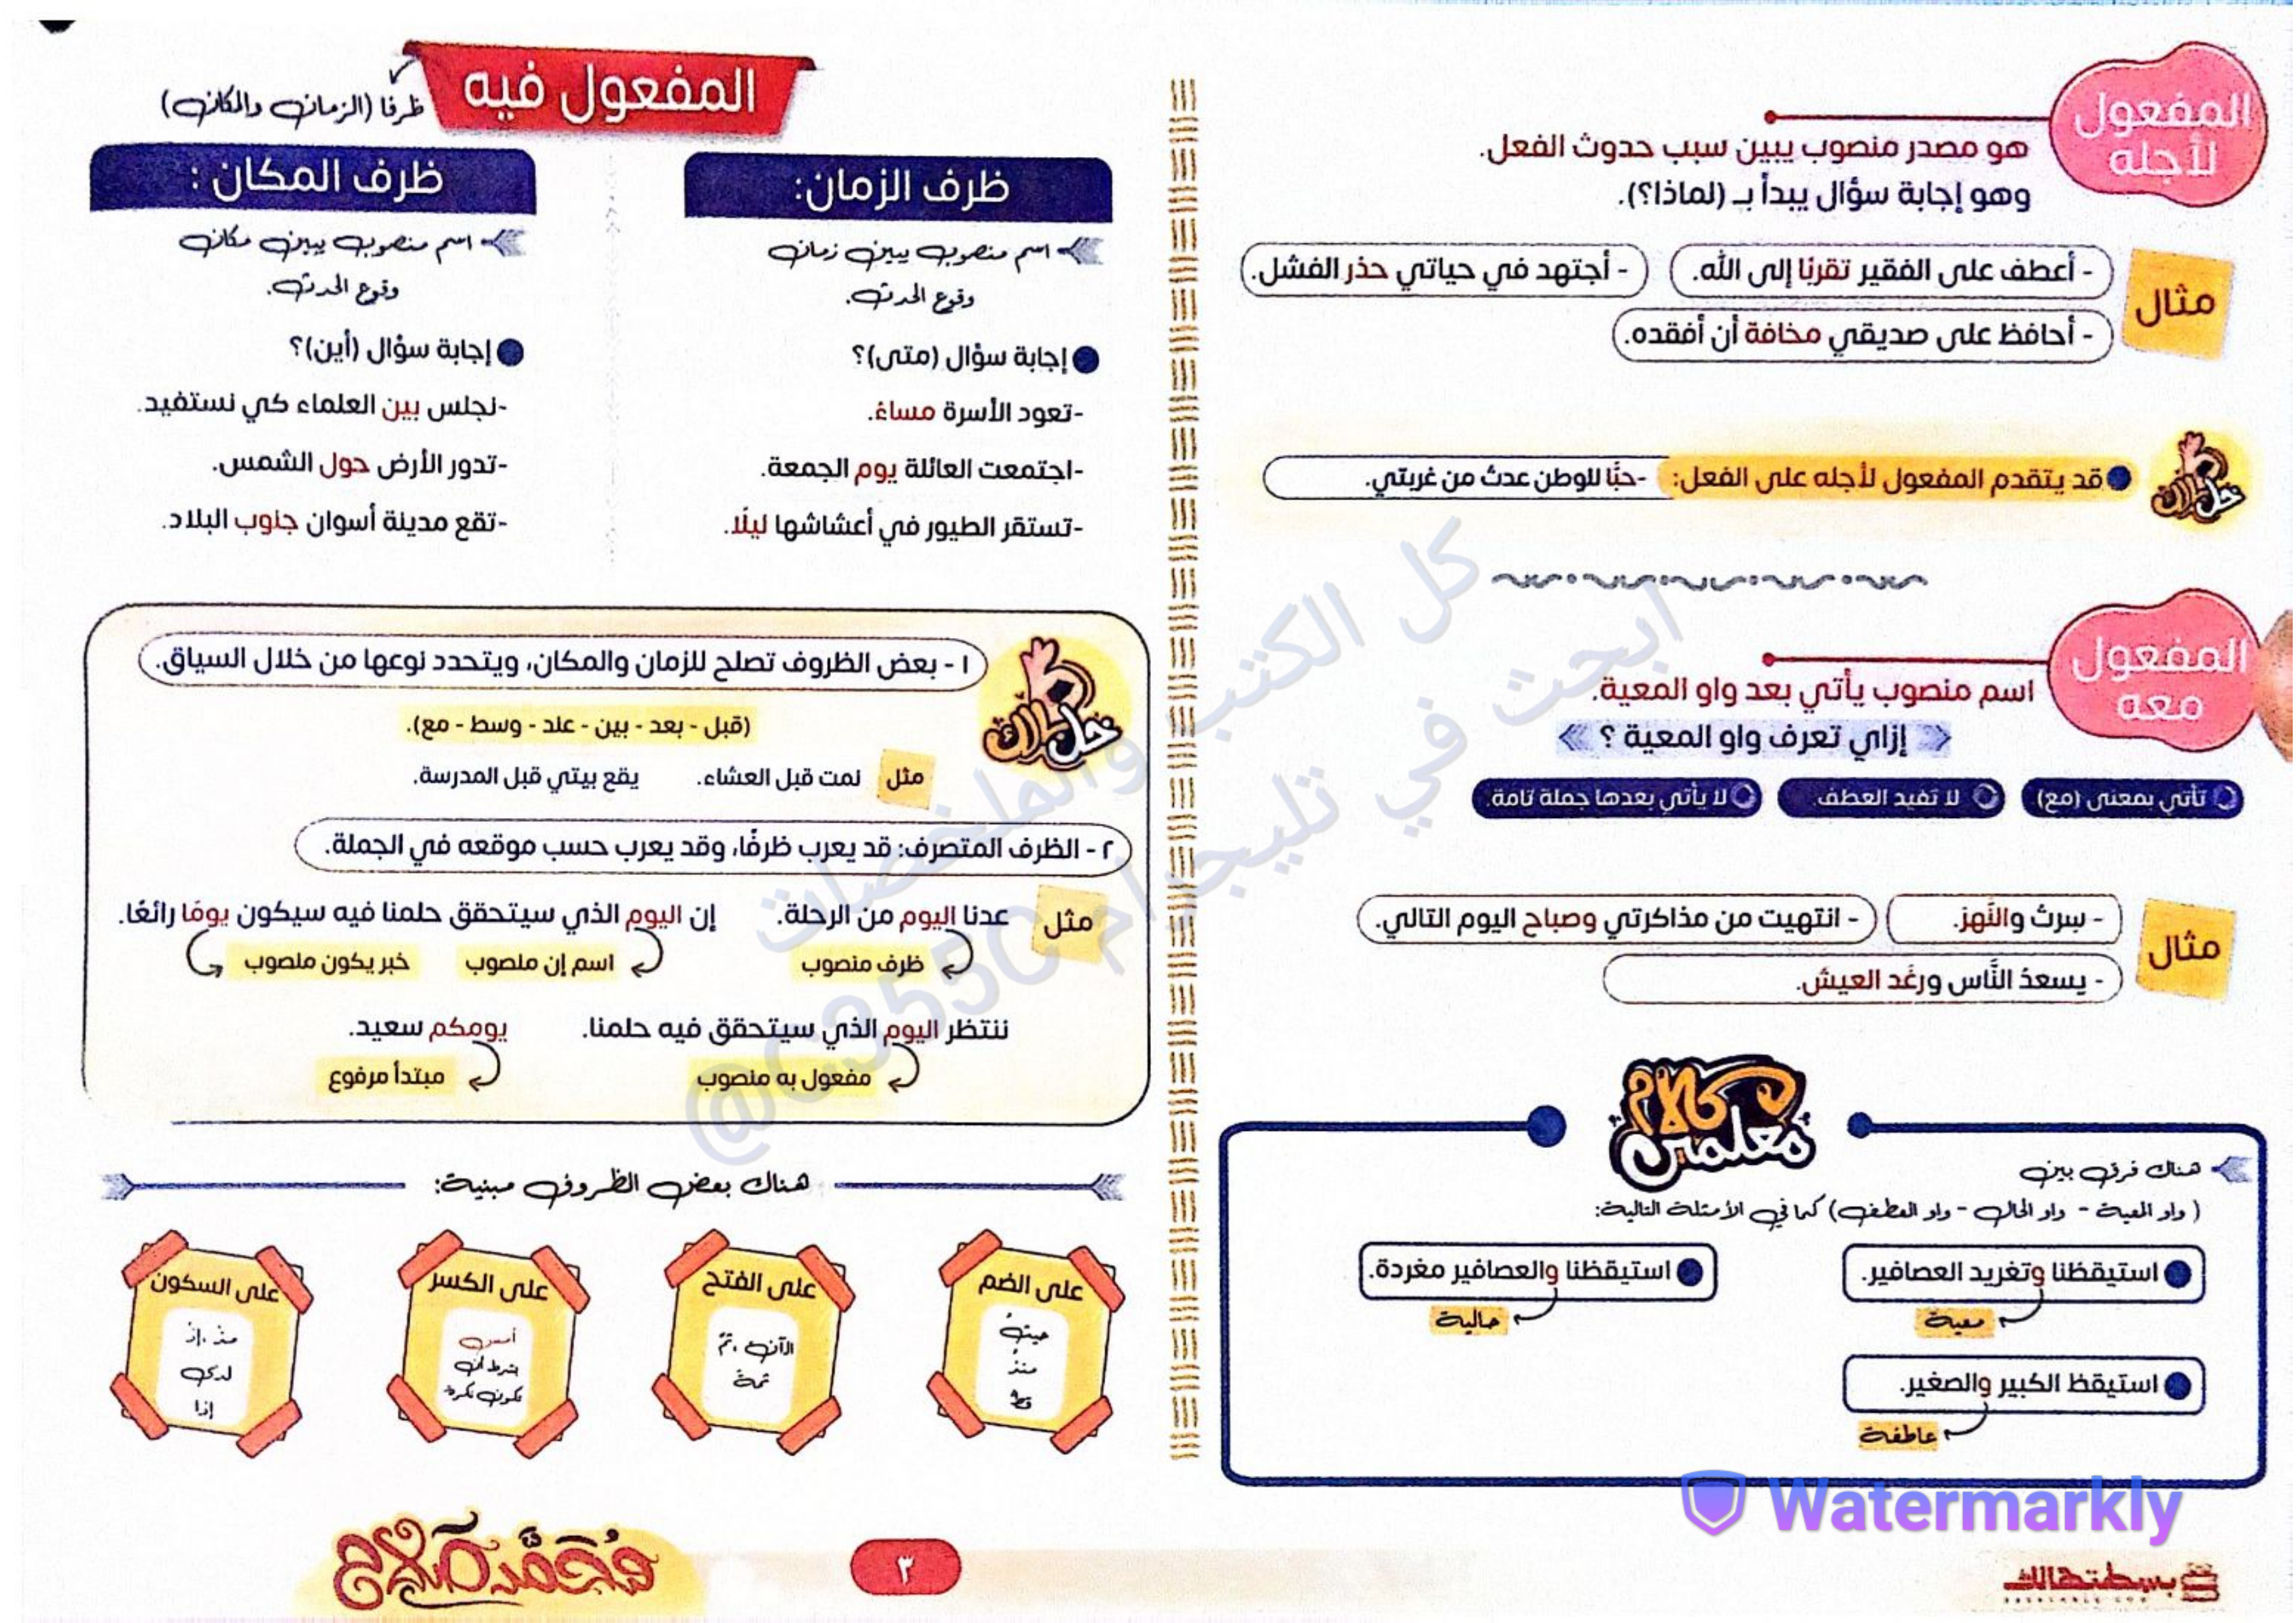 المفعول لأجله
هو مصدر منصوب يبين سبب حدوث الفعل.
وهو إجابة سؤال يبدأ بـ (لماذا؟).
مثال
- أعطف على الفقير تقربًا إلى الله.
- أجتهد في حياتي حذر الفشل.
- أحافظ على صديقي مخافة أن أفقده.
خلي بالك
قد يتقدم المفعول لأجله على الفعل: -حبًّا للوطن عدتُ من غربتي.
المفعول معه
اسم منصوب يأتي بعد واو المعية.
إزاي تعرف واو المعية ؟
تأتي بمعنى (مع)
لا تفيد العطف.
لا يأتي بعدها جملة تامة.
مثال
- سرتُ والنَّهرَ.
- انتهيت من مذاكرتي وصباح اليوم التالي.
- يسعدُ النَّاس ورغَد العيش.
كلام معلمين
هناك فرق بين
( واو المعية - واو الحال - واو العطف) كما في الأمثلة التالية:
استيقظنا وتغريد العصافير.
معية
استيقظنا والعصافير مغردة.
حالية
استيقظ الكبير والصغير.
عاطفة
المفعول فيه
ظرفا (الزمان والمكان)
ظرف الزمان:
اسم منصوب يبين زمان
وقوع الحدث.
إجابة سؤال (متى)؟
-تعود الأسرة مساءً.
-اجتمعت العائلة يوم الجمعة.
-تستقر الطيور في أعشاشها ليلًا.
ظرف المكان :
اسم منصوب يبين مكان
وقوع الحدث.
إجابة سؤال (أين)؟
-نجلس بين العلماء كي نستفيد.
-تدور الأرض حول الشمس.
-تقع مدينة أسوان جنوب البلاد.
خلي بالك
١ - بعض الظروف تصلح للزمان والمكان، ويتحدد نوعها من خلال السياق.
(قبل - بعد - بين - عند - وسط - مع).
مثل
نمت قبل العشاء.
يقع بيتي قبل المدرسة.
٢ - الظرف المتصرف: قد يعرب ظرفًا، وقد يعرب حسب موقعه في الجملة.
مثل
عدنا اليوم من الرحلة.
إن اليوم الذي سيتحقق حلمنا فيه سيكون يومًا رائعًا.
ظرف منصوب
اسم إن منصوب
خبر يكون منصوب
ننتظر اليوم الذي سيتحقق فيه حلمنا.
يومكم سعيد.
مفعول به منصوب
مبتدأ مرفوع
هناك بعض الظروف مبنية:
على الضم
حيثُ
منذُ
قطُّ
على الفتح
الآن ، ثمَّ
ثمةَ
على الكسر
أمسِ
بشرط أن
تكون نكرة
على السكون
مذْ ، إذْ
لدى
إذا
كل الكتب والملخصات
ابحث في تليجرام
@C355C
Watermarkly
محمد صلاح
٣
بسطتهالك